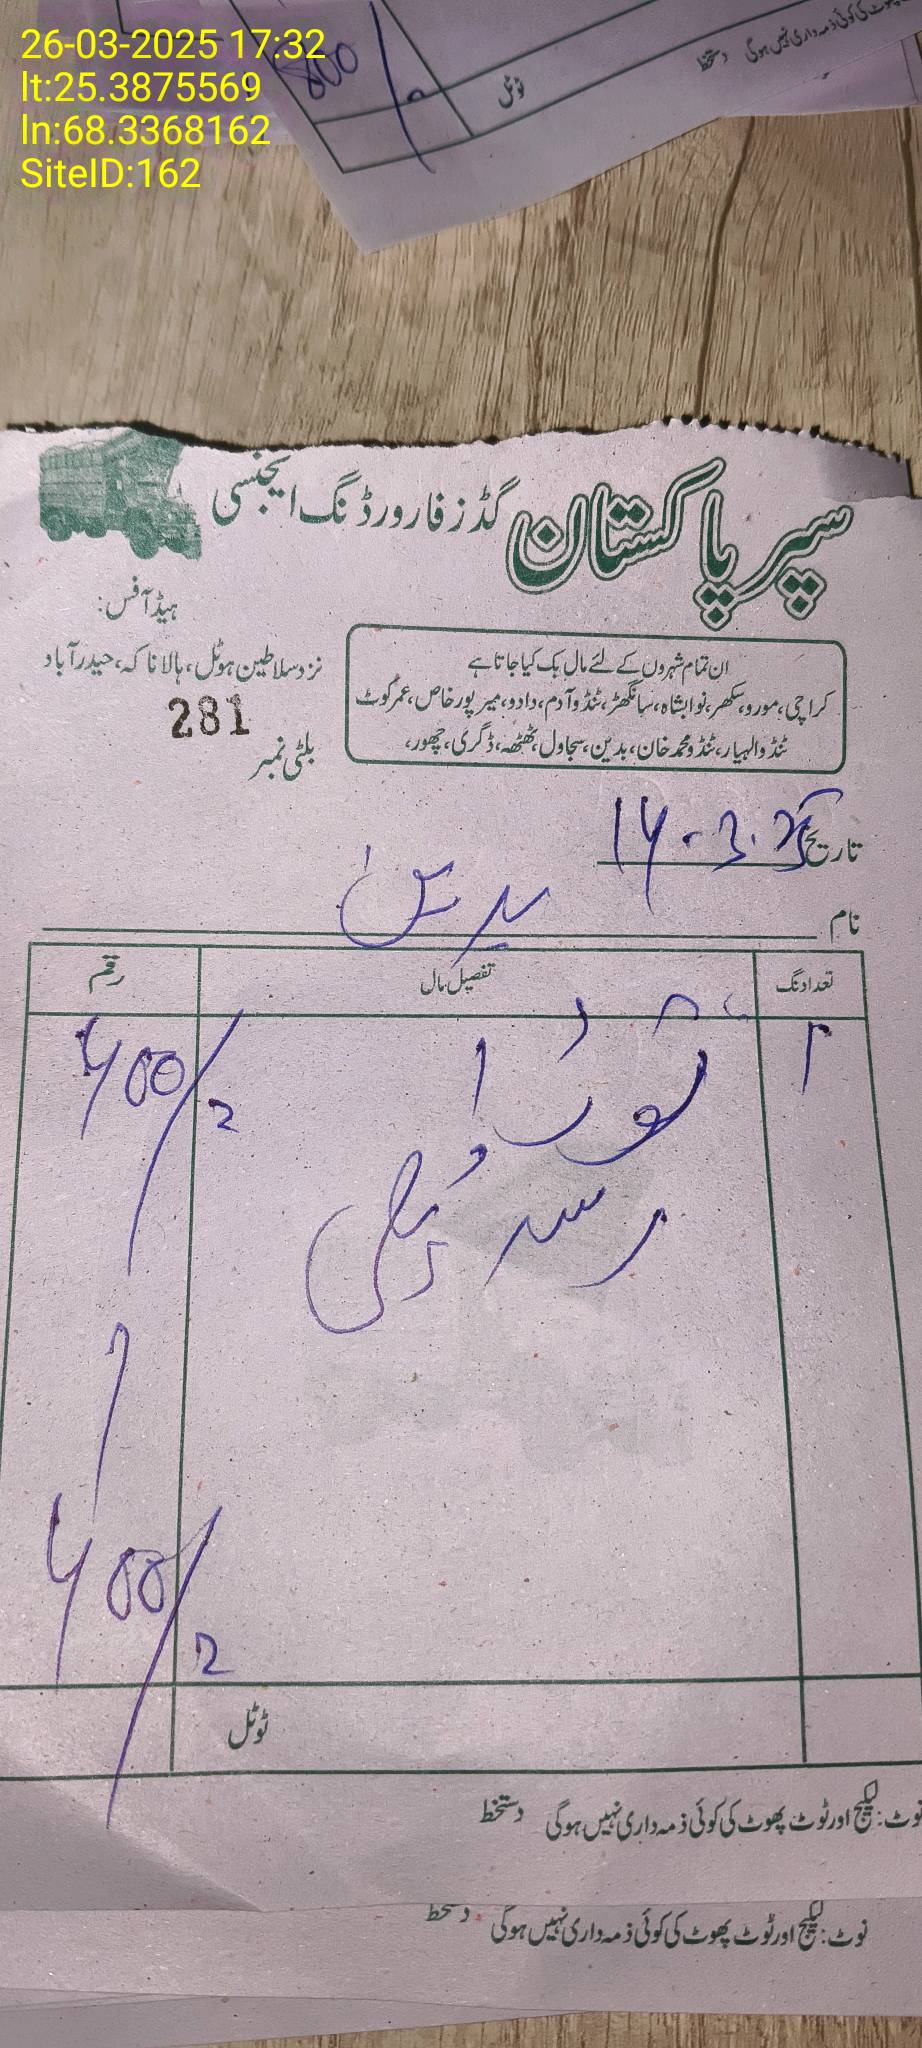 26-03-2025 17:32
lt:25.3875569
ln:68.3368162
SiteID:162
800/
ٹوٹل
پھوٹ کی کوئی ذمہ داری نہیں ہوگی دستخط
سپر پاکستان گڈز فارورڈنگ ایجنسی
ہیڈ آفس:
نزد سلاطین ہوٹل، ہالا ناکہ، حیدرآباد
ان تمام شہروں کے لئے مال بک کیا جاتا ہے
کراچی، مورو، سکھر، نوابشاہ، سانگھڑ، ٹنڈو آدم، دادو، میر پور خاص، عمر کوٹ
ٹنڈو الہیار، ٹنڈو محمد خان، بدین، سجاول، ٹھٹھہ، ڈگری، چھور،
281
بلٹی نمبر
تاریخ
نام بدین
تعداد نگ تفصیل مال رقم
ٹوٹل
نوٹ: لیکیج اور ٹوٹ پھوٹ کی کوئی ذمہ داری نہیں ہوگی دستخط
نوٹ: لیکیج اور ٹوٹ پھوٹ کی کوئی ذمہ داری نہیں ہوگی دستخط